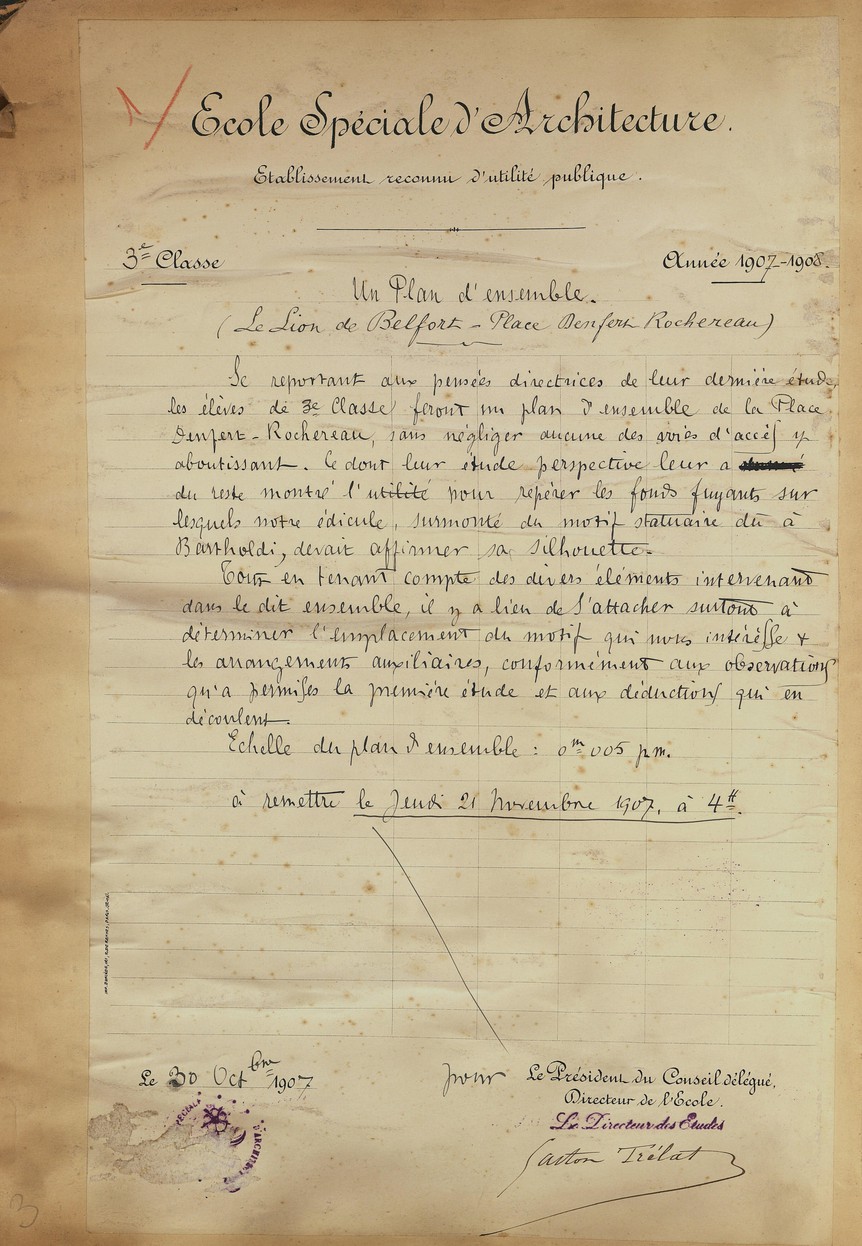 Ecole Spéciale d'Architecture.
Etablissement reconnu d'utilité publique.
3e Classe
Année 1907-1908.
Un Plan d'ensemble.
(Le Lion de Belfort - Place Denfert Rochereau)
Se reportant aux pensées directrices de leur dernière étude,
les élèves de 3e Classe feront un plan d'ensemble de la Place
Denfert-Rochereau, sans négliger aucune des voies d'accès y
aboutissant. Ce dont leur étude perspective leur a
du reste montré l'utilité pour repérer les fonds fuyants sur
lesquels notre édicule, surmonté du motif statuaire dû à
Bartholdi, devait affirmer sa silhouette.
Tout en tenant compte des divers éléments intervenant
dans le dit ensemble, il y a lieu de s'attacher surtout à
déterminer l'emplacement du motif qui nous intéresse &
les arrangements auxiliaires, conformément aux observations
qu'a permises la première étude et aux déductions qui en
découlent.
Echelle du plan d'ensemble : 0m005 p.m.
à remettre le Jeudi 21 Novembre 1907, à 4H.
Le 30 Octbre 1907
pour Le Président du Conseil délégué,
Directeur de l'Ecole.
Le Directeur des Etudes
Gaston Trélat
SPÉCIALE D'ARCHITECTURE
3